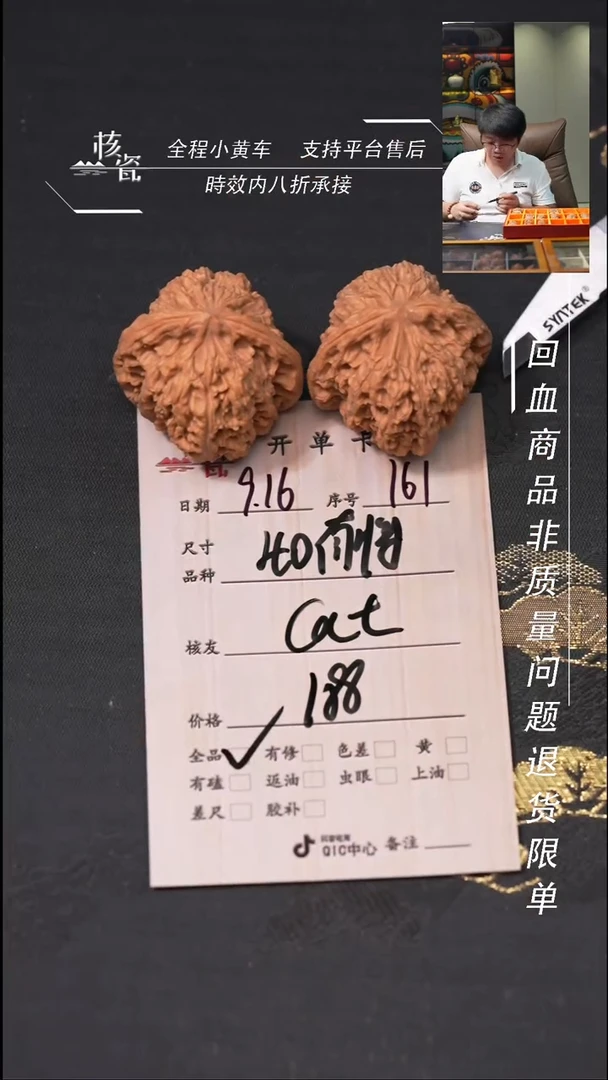 核瓷
全程小黄车 支持平台售后
時效内八折承接
SYNTEK®
回血商品非质量问题退货限单
开单卡
日期 9.16 序号 161
尺寸
品种 40
核友 Cat
价格 188
全品 ✓ 有修 色差 黄
有磕 返油 虫眼 上油
差尺 胶补
QIC中心 备注